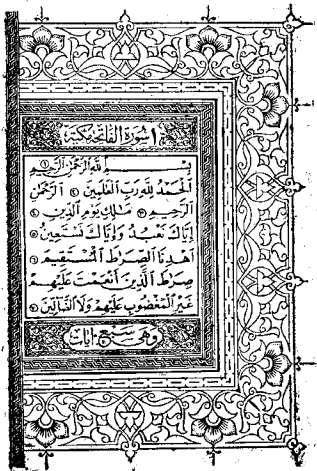 ١ سُورَةُ الفَاتِحَة مَكِّيَّة
بِسْمِ اللَّهِ الرَّحْمَٰنِ الرَّحِيمِ ①
الْحَمْدُ لِلَّهِ رَبِّ الْعَٰلَمِينَ ② الرَّحْمَٰنِ
الرَّحِيمِ ③ مَٰلِكِ يَوْمِ الدِّينِ ④
إِيَّاكَ نَعْبُدُ وَإِيَّاكَ نَسْتَعِينُ ⑤
اهْدِنَا الصِّرَٰطَ الْمُسْتَقِيمَ ⑥
صِرَٰطَ الَّذِينَ أَنْعَمْتَ عَلَيْهِمْ
غَيْرِ الْمَغْضُوبِ عَلَيْهِمْ وَلَا الضَّالِّينَ ⑦
وَهِيَ سَبْعُ آيَات